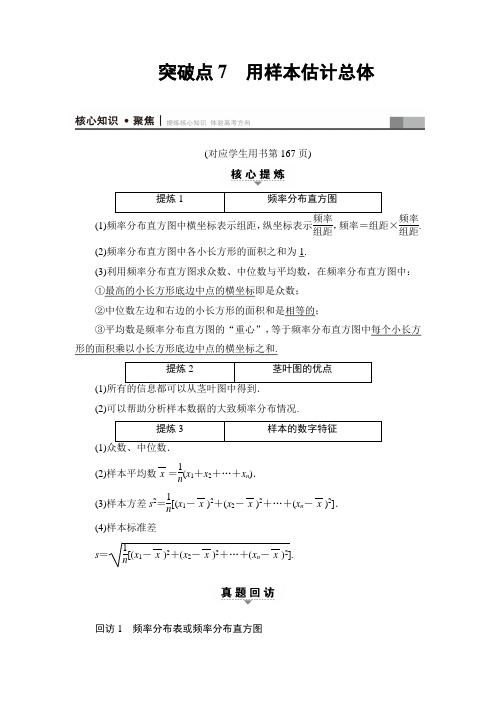 突破点7　用样本估计总体
核心知识·聚焦|提炼核心知识 体验高考方向
(对应学生用书第167页)
核心提炼
提炼1　频率分布直方图
(1)频率分布直方图中横坐标表示组距，纵坐标表示频率/组距，频率＝组距×频率/组距.
(2)频率分布直方图中各小长方形的面积之和为1.
(3)利用频率分布直方图求众数、中位数与平均数，在频率分布直方图中：
①最高的小长方形底边中点的横坐标即是众数；
②中位数左边和右边的小长方形的面积和是相等的；
③平均数是频率分布直方图的“重心”，等于频率分布直方图中每个小长方
形的面积乘以小长方形底边中点的横坐标之和.
提炼2　茎叶图的优点
(1)所有的信息都可以从茎叶图中得到．
(2)可以帮助分析样本数据的大致频率分布情况.
提炼3　样本的数字特征
(1)众数、中位数．
(2)样本平均数x̄＝1/n(x₁＋x₂＋…＋xₙ)．
(3)样本方差s²＝1/n[(x₁－x̄)²＋(x₂－x̄)²＋…＋(xₙ－x̄)²]．
(4)样本标准差
s＝√(1/n[(x₁－x̄)²＋(x₂－x̄)²＋…＋(xₙ－x̄)²]).
真题回访
回访1　频率分布表或频率分布直方图